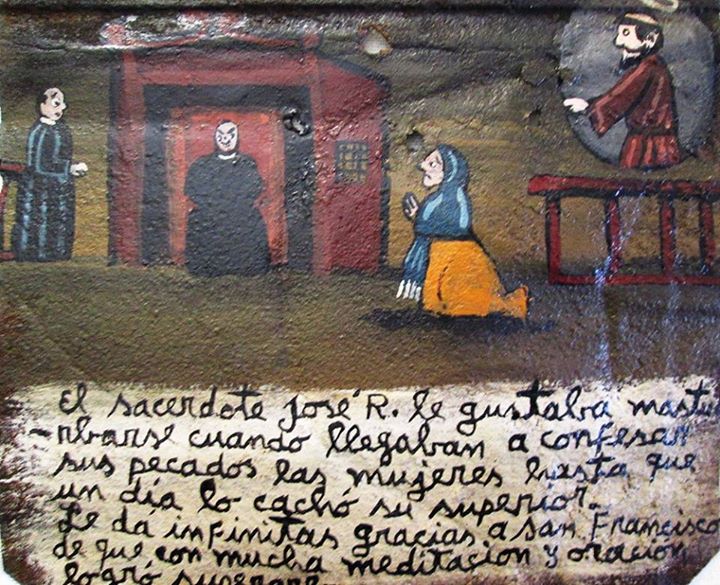 El sacerdote José R. le gustaba mastu
-rbarse cuando llegaban a confesar
sus pecados las mujeres hasta que
un día lo cachó su superior.
Le dá infinitas gracias a San Francisco
de que con mucha meditación y oración
logró superarse.